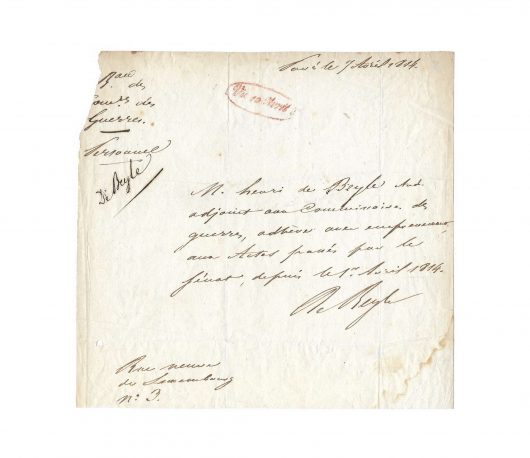 le 7 Avril 1814.
Bau des
Comres des
Guerres.
Personnel
De Beyle
M. henri de Beyle
adjoint aux Commissaires des
guerres, adhère avec empressement,
aux Actes passés par le
Sénat, depuis le 1er Avril 1814.
De Beyle
Rue neuve
du Luxembourg
n° 3.